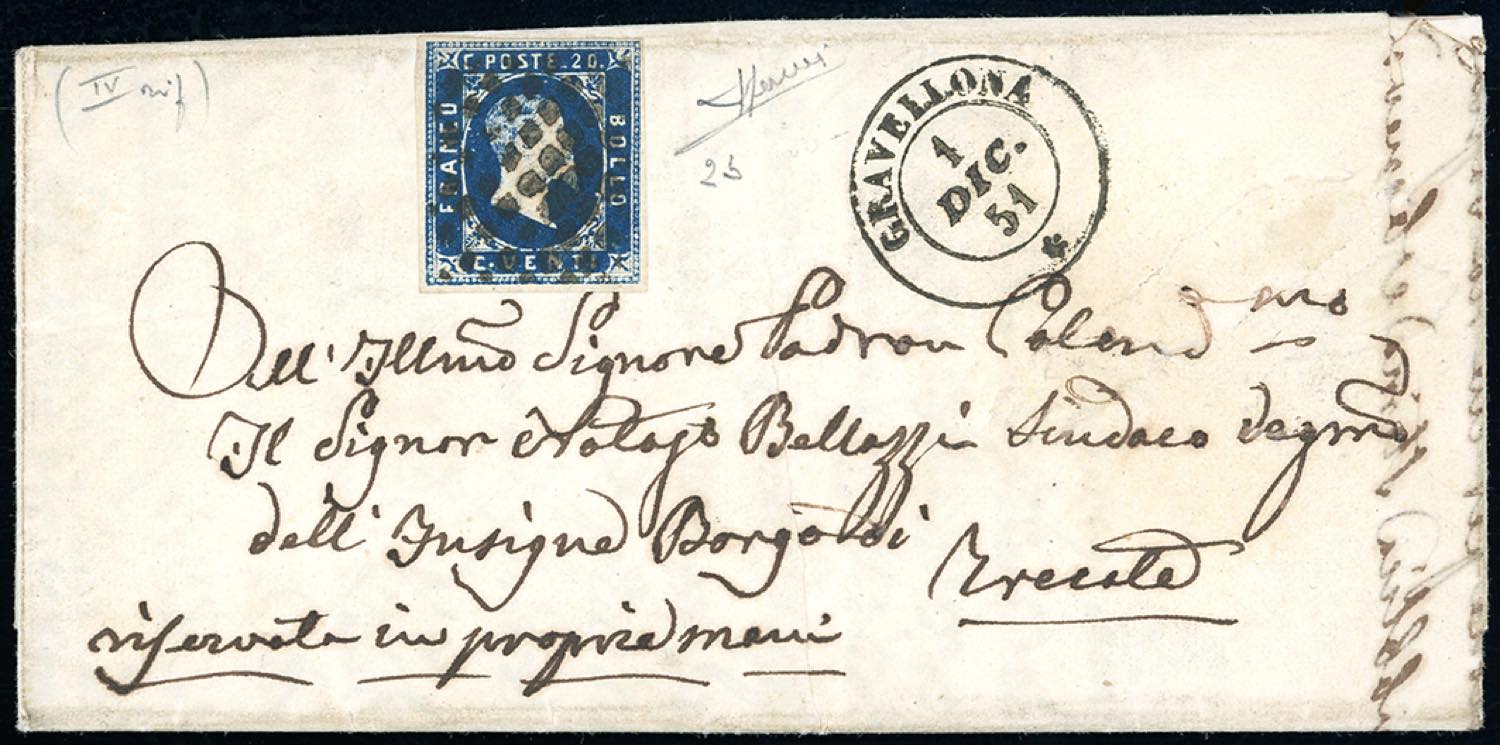 (IV rif)
C. POSTE. 20.
FRANCO
BOLLO
C. VENTI
25
GRAVELLONA
1
DIC.
51
Dell' Illmo Signore Padron Colend mo
Il Signor Notajo Bellazzi Sindaco degmo
dell' Insigne Borgo di
Trecate
riservata in proprie mani